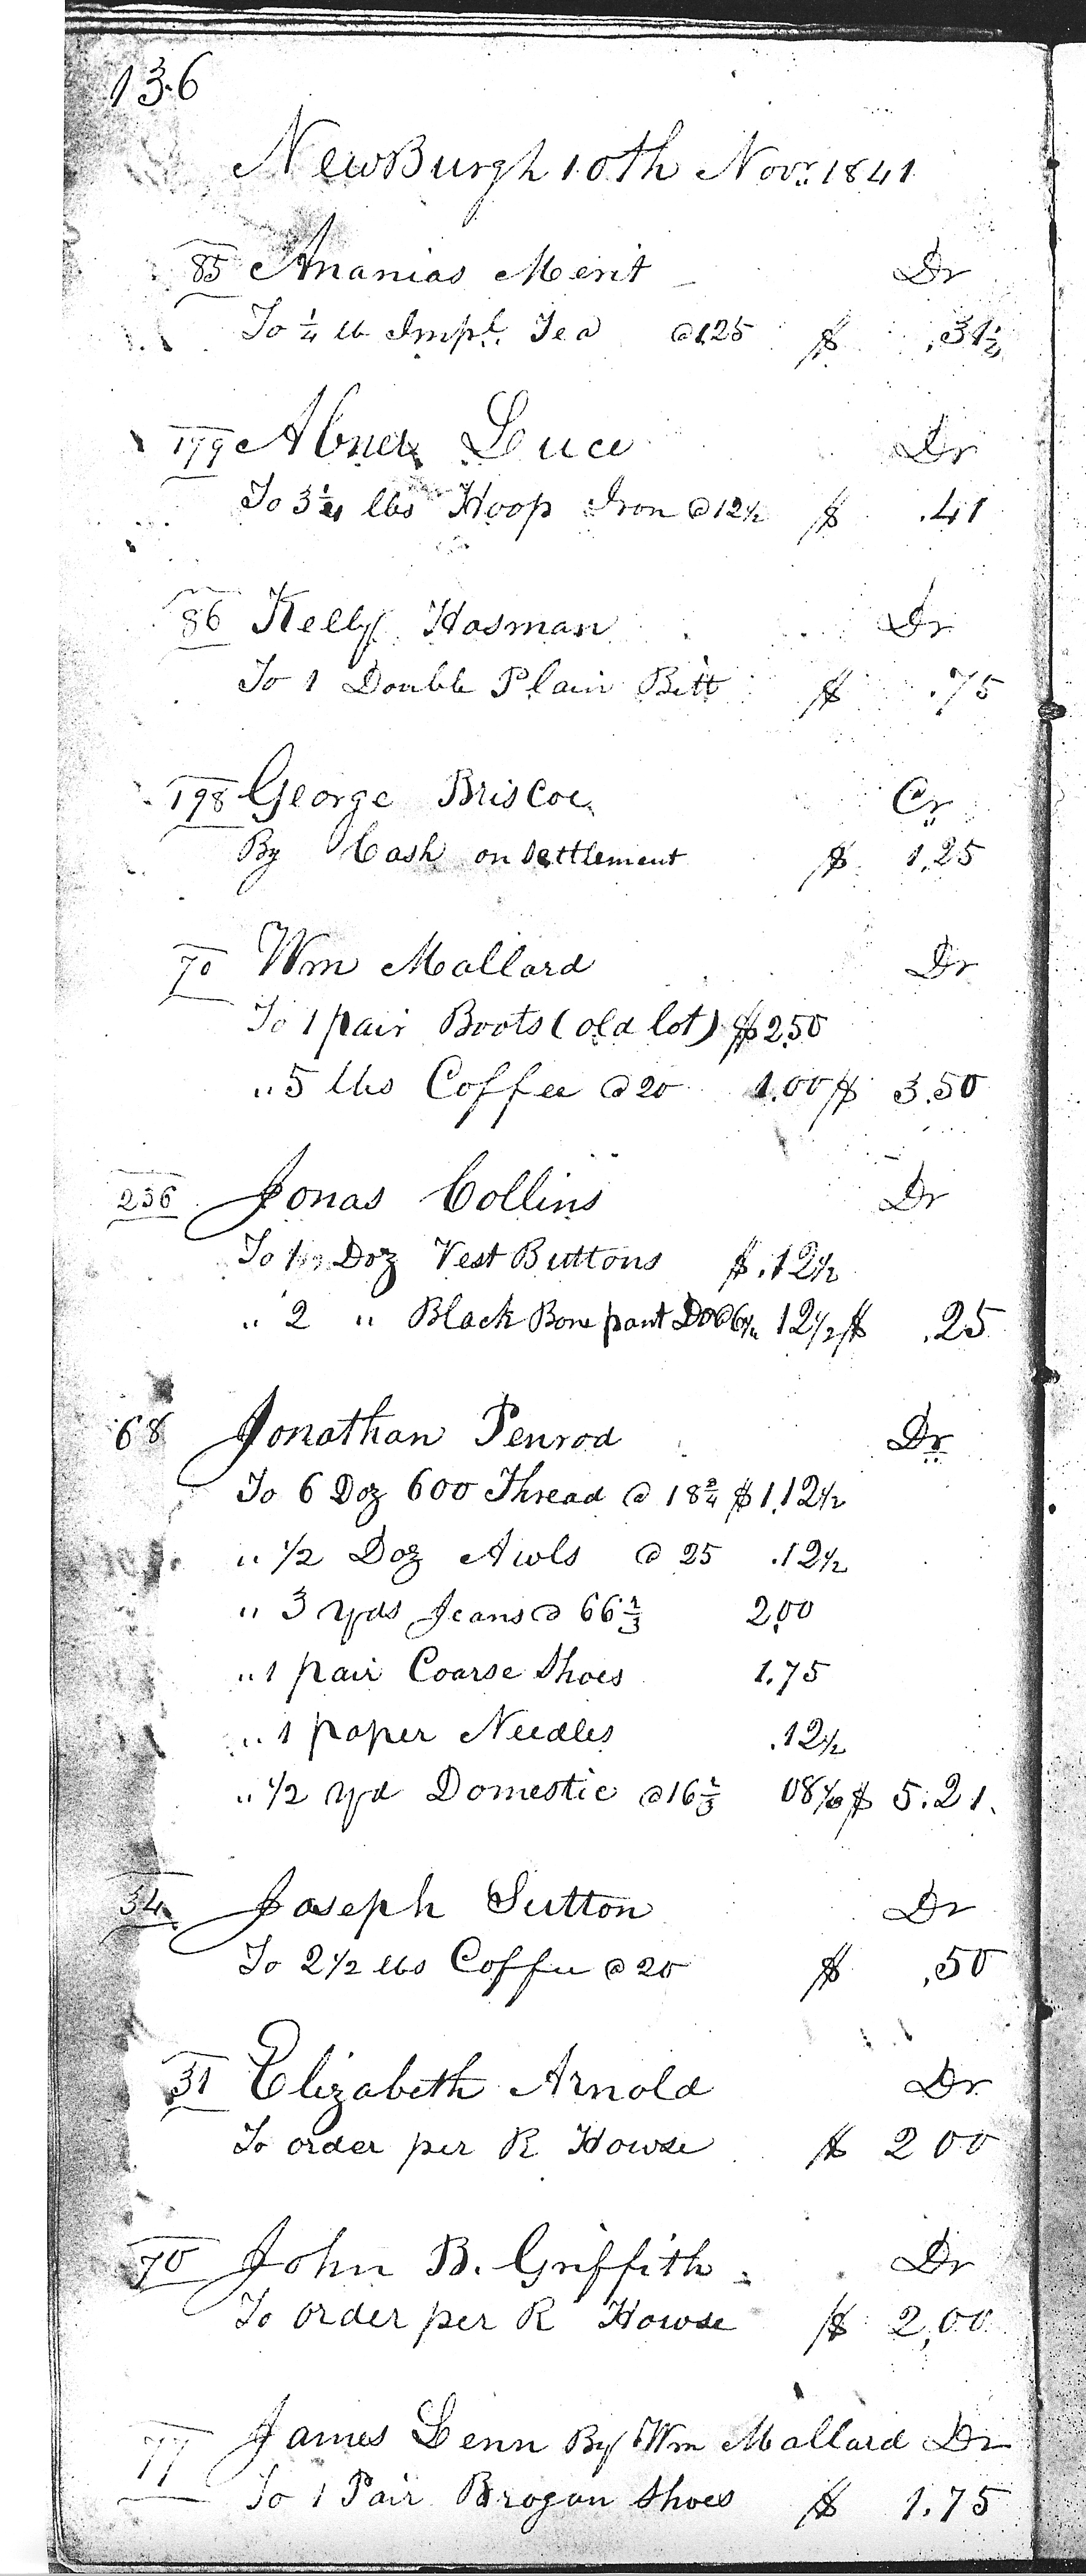 136
NewBurgh 10th Novr. 1841
85 Ananias Merit Dr
To ¼ lb Impl. Tea @125 $ .31¼
179 Abner Luce Dr
To 3¼ lbs Hoop Iron @12½ $ .41
86 Kelly Hasman Dr
To 1 Double Plain Bitt $ .75
198 George Briscoe Cr
By Cash on settlement $ 1.25
70 Wm Mallard Dr
To 1 pair Boots (old lot) $2.50
" 5 lbs Coffee @20 1.00 $ 3.50
236 Jonas Collins Dr
To 1 Doz Vest Buttons $.12½
" 2 " Black Bone pant Do @6¼ 12½ $ .25
68 Jonathan Penrod Dr
To 6 Doz 600 Thread @ 18¾ $1.12½
" ½ Doz Awls @ 25 .12½
" 3 yds Jeans @ 66⅔ 2.00
" 1 pair Coarse Shoes 1.75
" 1 paper Needles .12½
" ½ yd Domestic @16⅔ 08⅓ $ 5.21
34 Joseph Sutton Dr
To 2½ lbs Coffee @ 20 $ .50
31 Elizabeth Arnold Dr
To order per R Howse $ 2 00
70 John B. Griffith Dr
To order per R Howse $ 2,00
77 James Lenn By Wm Mallard Dr
To 1 Pair Brogan Shoes $ 1.75